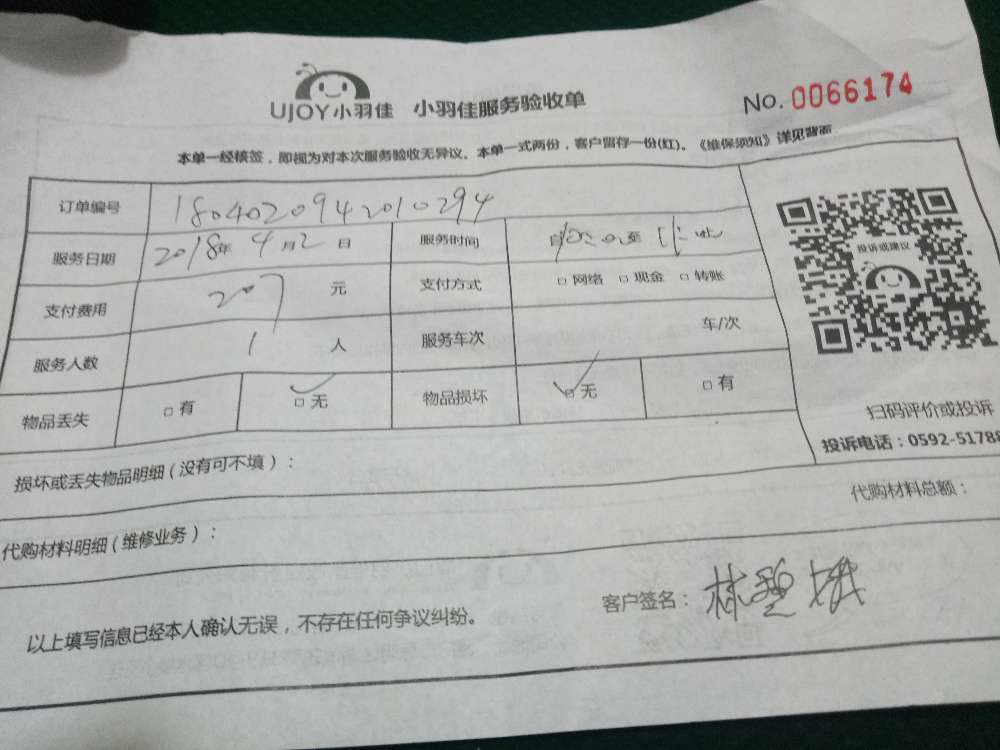 UJOY小羽佳 小羽佳服务验收单 No. 0066174
本单一经核签，即视为对本次服务验收无异议。本单一式两份，客户留存一份(红)。《维保须知》详见背面
订单编号 1804020942010294
服务日期 2018年 4月2日 服务时间 自 至
支付费用 207 元 支付方式 □ 网络 □ 现金 □ 转账
服务人数 1 人 服务车次 车/次
物品丢失 □ 有 □ 无 物品损坏 □ 无 □ 有
投诉或建议
扫码评价或投诉
投诉电话：0592-51788
损坏或丢失物品明细(没有可不填)：
代购材料总额：
代购材料明细(维修业务)：
客户签名：林
以上填写信息已经本人确认无误，不存在任何争议纠纷。